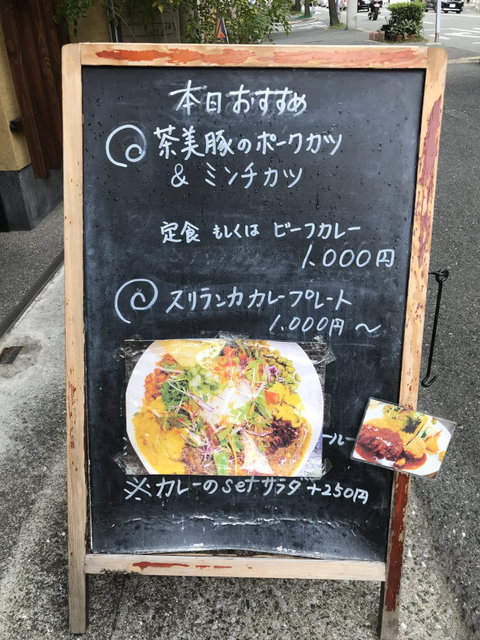 本日おすすめ
茶美豚のポークカツ
& ミンチカツ
定食 もしくは ビーフカレー
1.000円
スリランカカレープレート
1.000円〜
ール
※カレーのsetサラダ +250円